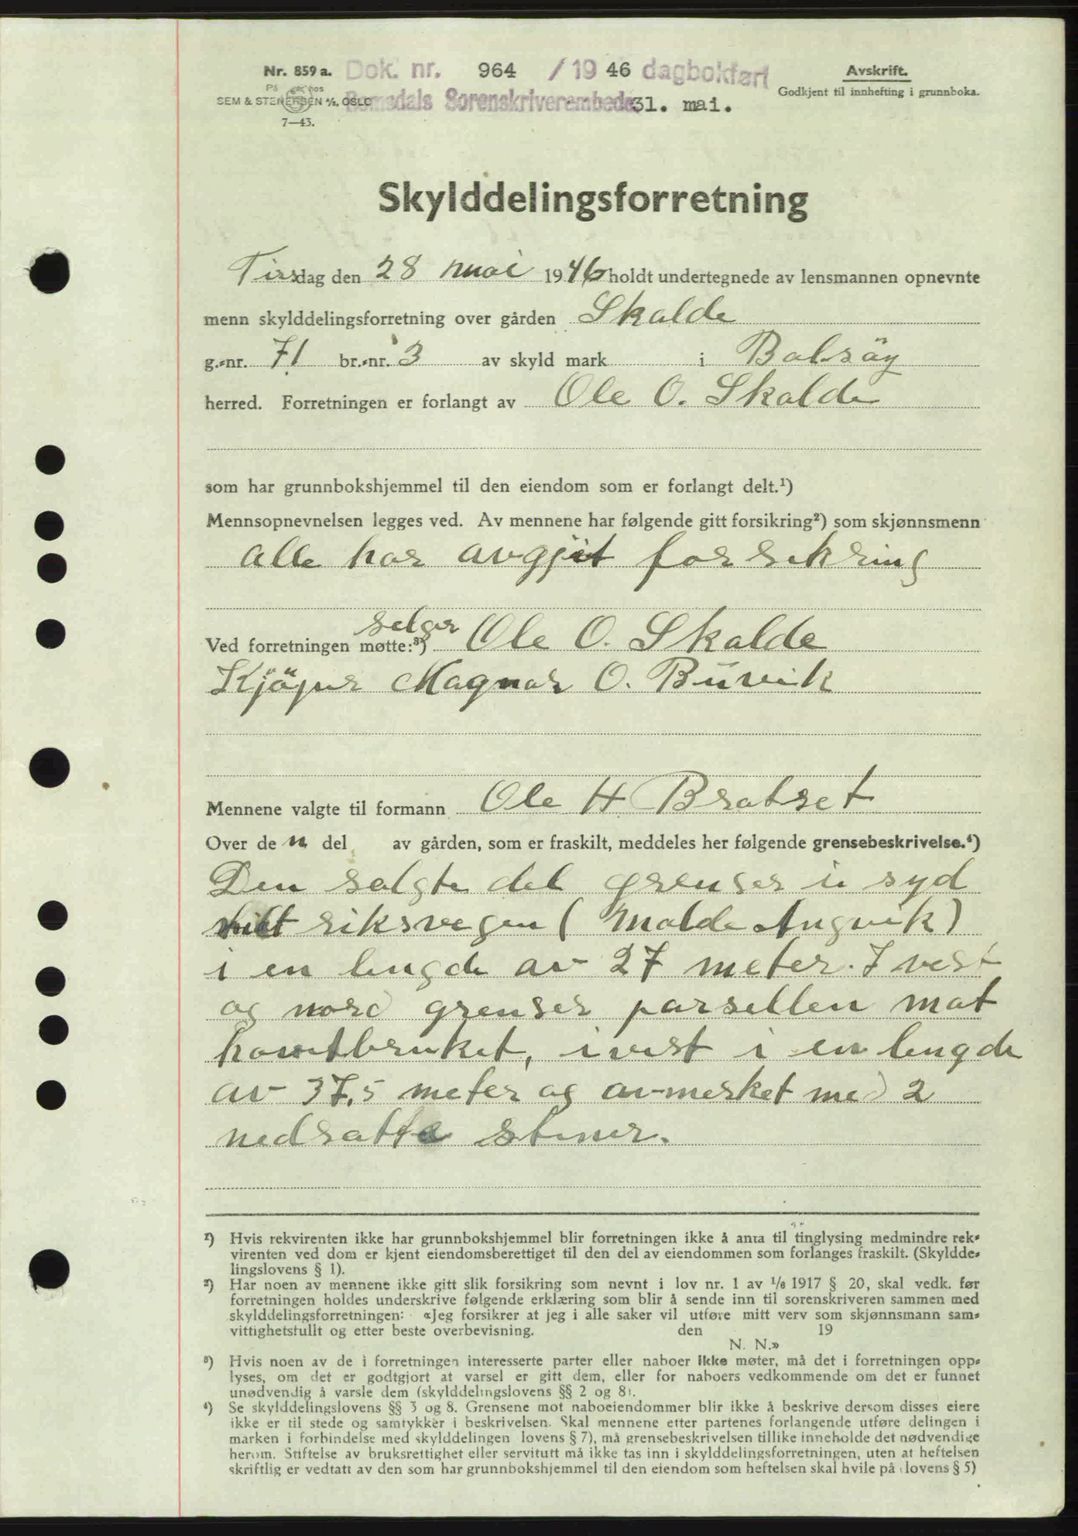 Nr. 859 a.
Dok. nr. 964 / 19 46 dagbokført
Avskrift.
SEM & STENERSEN A/S, OSLO
Romsdals Sorenskriverembede 31. mai.
Godkjent til innhefting i grunnboka.
7—43.
Skylddelingsforretning
Tirsdag den 28 mai 1946 holdt undertegnede av lensmannen opnevnte
menn skylddelingsforretning over gården Skalde
g.-nr. 71 br.-nr. 3 av skyld mark i Bolsöy
herred. Forretningen er forlangt av Ole O. Skalde
som har grunnbokshjemmel til den eiendom som er forlangt delt.¹)
Mennsopnevnelsen legges ved. Av mennene har følgende gitt forsikring²) som skjønnsmenn
alle har avgjit forsikring
selger
Ved forretningen møtte:³) Ole O. Skalde
Kjöper Magnar O. Buvik
Mennene valgte til formann Ole H Bratset
Over den del av gården, som er fraskilt, meddeles her følgende grensebeskrivelse.⁴)
Den solgte del grenser i syd
til riksvegen (Molde Angvik)
i en lengde av 27 meter. I vest
og nord grenser parsellen mot
hovetbruket, i vest i en lengde
av 37,5 meter og avmerket med 2
nedsatte stener.
¹) Hvis rekvirenten ikke har grunnbokshjemmel blir forretningen ikke å anta til tinglysing medmindre rek-
virenten ved dom er kjent eiendomsberettiget til den del av eiendommen som forlanges fraskilt. (Skyldde-
lingslovens § 1).
²) Har noen av mennene ikke gitt slik forsikring som nevnt i lov nr. 1 av 1/6 1917 § 20, skal vedk. før
forretningen holdes underskrive følgende erklæring som blir å sende inn til sorenskriveren sammen med
skylddelingsforretningen: «Jeg forsikrer at jeg i alle saker vil utføre mitt verv som skjønnsmann sam-
vittighetsfullt og etter beste overbevisning. den 19
N. N.»
³) Hvis noen av de i forretningen interesserte parter eller naboer ikke møter, må det i forretningen opp-
lyses, om det er godtgjort at varsel er gitt dem, eller for naboers vedkommende om det er funnet
unødvendig å varsle dem (skylddelingslovens §§ 2 og 8).
⁴) Se skylddelingslovens §§ 3 og 8. Grensene mot naboeiendommer blir ikke å beskrive dersom disses eiere
ikke er til stede og samtykker i beskrivelsen. Skal mennene etter partenes forlangende utføre delingen i
marken i forbindelse med skylddelingen lovens § 7), må grensebeskrivelsen tillike inneholde det nødvendige
herom. Stiftelse av bruksrettighet eller servitutt må ikke tas inn i skylddelingsforretningen, uten at heftelsen
skriftlig er vedtatt av den som har grunnbokshjemmel til den eiendom som heftelsen skal hvile på lovens § 5)